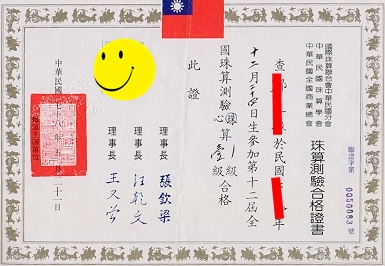 聯證字第0050083號
珠算測驗合格證書
國際珠算聯合會中華民國分會
中華民國珠算學會
中華民國全國商業總會
查 於民國 年
十二月 日生參加第十二屆全
國珠算測驗心算 級合格
此證
理事長 張欽梁
理事長 汪乾文
理事長 王又曾
中華民國七十八年 月二十一日